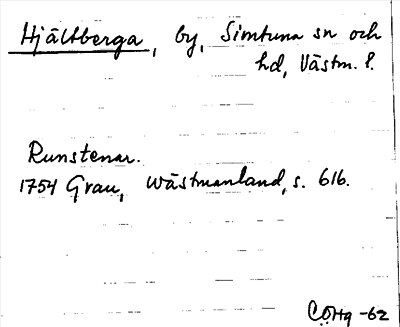 Hjältberga, by, Simtuna sn och
hd, Västm. l.
Runstenar.
1754 Grau, Wästmanland, s. 616.
CÖHg -62